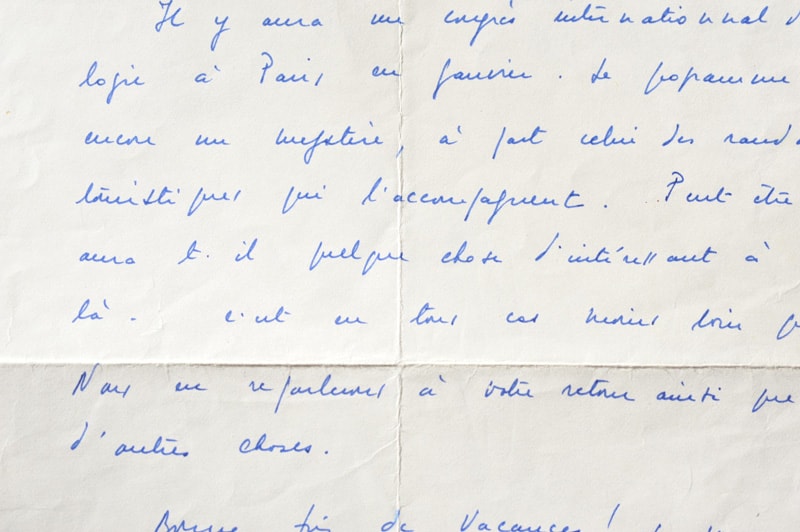 Il y aura un congrès international d
logie à Paris en janvier. Le programme
encore un mystère, à part celui des rand
touristiques qui l'accompagnent. Peut être
aura t. il quelque chose d'intéressant à
là. c'est en tous cas moins loin q
Nous en reparlerons à votre retour ainsi que
d'autres choses.
Bonne fin de Vacances!